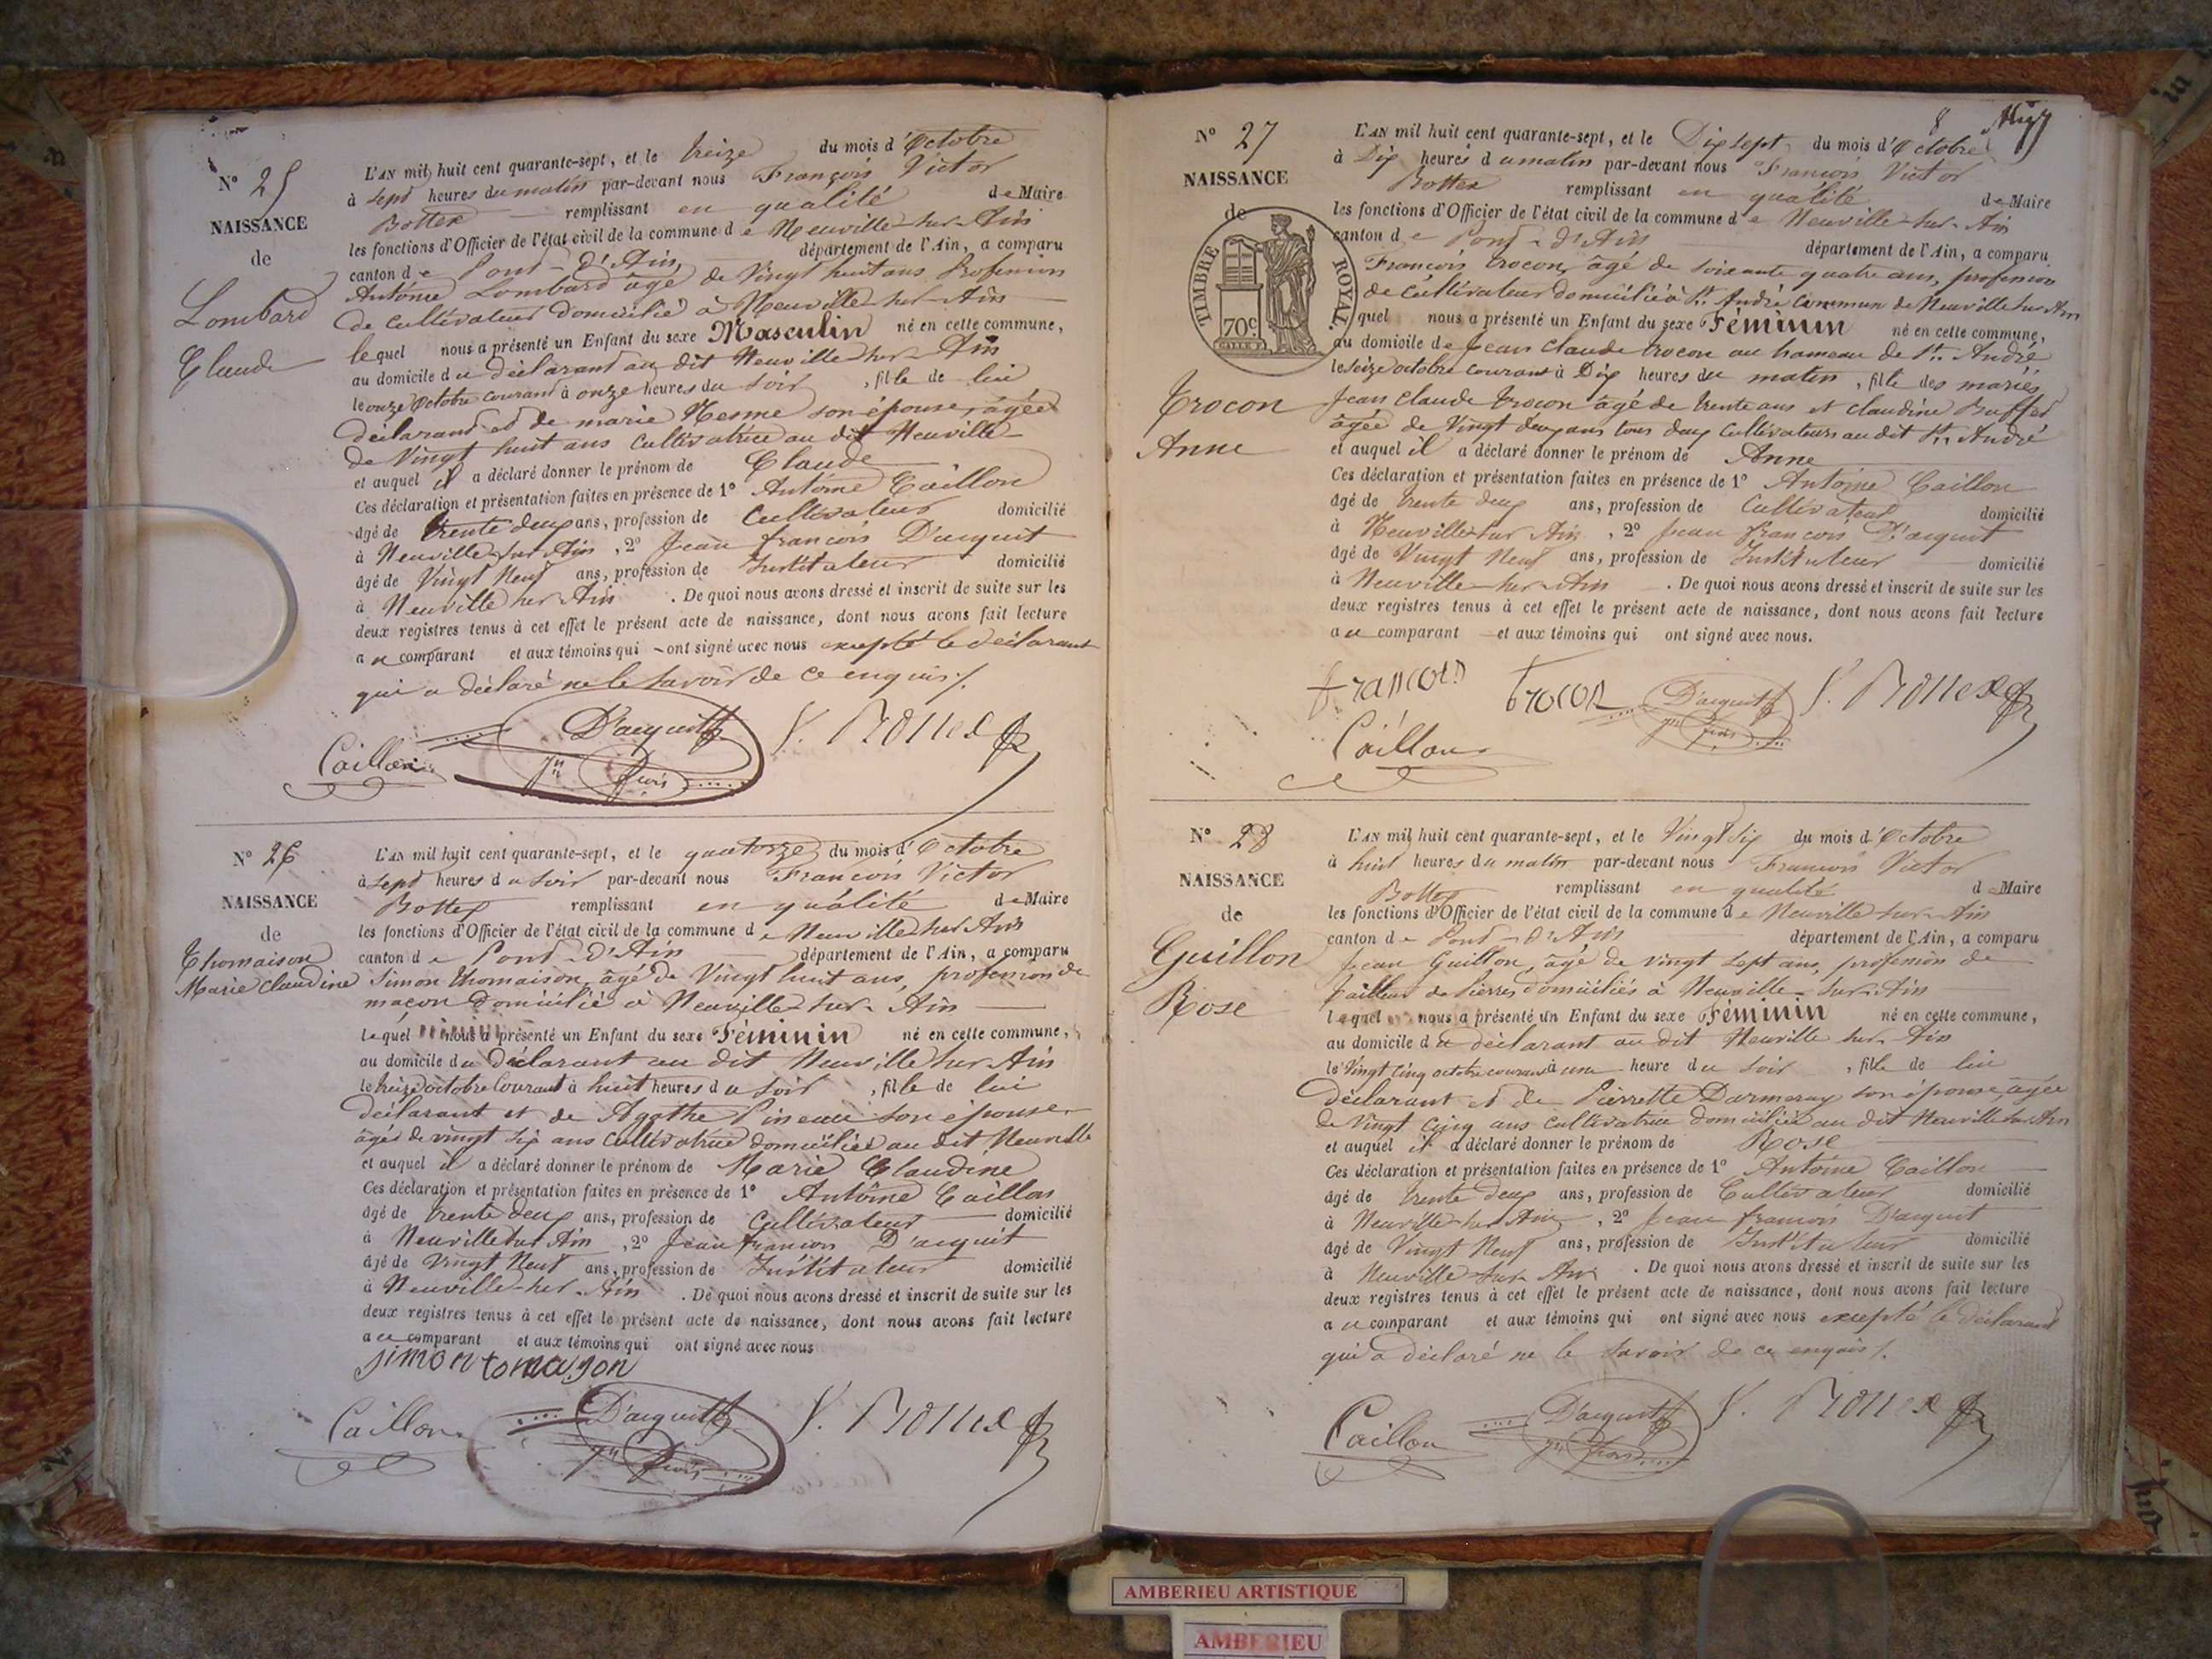 N° 25
NAISSANCE
de
Lombard
Claude
L'AN mil huit cent quarante-sept, et le treize du mois d'Octobre
à sept heures du matin par-devant nous François Victor
Bottex remplissant en qualité de Maire
les fonctions d'Officier de l'état civil de la commune de Neuville sur Ain
canton de Pont-d'Ain département de l'Ain, a comparu
Antoine Lombard âgé de Vingt huit ans Profession
de cultivateur domicilié à Neuville sur Ain
lequel nous a présenté un Enfant du sexe Masculin né en cette commune,
au domicile du déclarant au dit Neuville sur Ain
le onze Octobre courant à onze heures du soir, fils de lui
déclarant et de marie son épouse, âgée
de Vingt huit ans Cultivatrice au dit Neuville
et auquel il a déclaré donner le prénom de Claude
Ces déclaration et présentation faites en présence de 1° Antoine Caillon
âgé de trente deux ans, profession de Cultivateur domicilié
à Neuville sur Ain, 2° Jean françois D'arquit
âgé de Vingt Neuf ans, profession de Instituteur domicilié
à Neuville sur Ain. De quoi nous avons dressé et inscrit de suite sur les
deux registres tenus à cet effet le présent acte de naissance, dont nous avons fait lecture
au comparant et aux témoins qui ont signé avec nous excepté le déclarant
qui a déclaré ne le savoir de ce enquis /.
Caillon D'arquit Jn fois V. Bottex
N° 26
NAISSANCE
de
Thomaison
Marie Claudine
L'AN mil huit cent quarante-sept, et le quatorze du mois d'Octobre
à sept heures du soir par-devant nous François Victor
Bottex remplissant en qualité de Maire
les fonctions d'Officier de l'état civil de la commune de Neuville sur Ain
canton de Pont-d'Ain département de l'Ain, a comparu
Simon thomaison, âgé de Vingt huit ans, profession de
maçon domicilié à Neuville sur Ain
lequel nous a présenté un Enfant du sexe Féminin né en cette commune,
au domicile du Déclarant au dit Neuville sur Ain
le treize octobre Courant à huit heures du soir, fille de lui
déclarant et de Agathe Pineau son épouse
âgée de vingt six ans Cultivatrice domiciliée au dit Neuville
et auquel il a déclaré donner le prénom de Marie Claudine
Ces déclaration et présentation faites en présence de 1° Antoine Caillon
âgé de trente deux ans, profession de Cultivateur domicilié
à Neuville sur Ain, 2° Jean françois D'arquit
âgé de Vingt Neuf ans, profession de Instituteur domicilié
à Neuville sur Ain. De quoi nous avons dressé et inscrit de suite sur les
deux registres tenus à cet effet le présent acte de naissance, dont nous avons fait lecture
au comparant et aux témoins qui ont signé avec nous
simon tomaison
Caillon D'arquit Jn fois V. Bottex
8
N° 27
NAISSANCE
de
TIMBRE ROYAL.
70c
Trocon
Anne
L'AN mil huit cent quarante-sept, et le Dix sept du mois d'Octobre
à Dix heures du matin par-devant nous François Victor
Bottex remplissant en qualité de Maire
les fonctions d'Officier de l'état civil de la commune de Neuville sur Ain
canton de Pont-d'Ain département de l'Ain, a comparu
François trocon, âgé de soixante quatre ans, profession
de Cultivateur domicilié à St. André Commun de Neuville sur Ain
quel nous a présenté un Enfant du sexe Féminin né en cette commune,
au domicile de Jean Claude trocon au hameau de St. André
le seize octobre courant à Dix heures du matin, fille des mariés
Jean Claude trocon âgé de trente ans et claudine Buffet
âgée de Vingt deux ans tous deux Cultivateurs au dit St. André
et auquel il a déclaré donner le prénom de Anne
Ces déclaration et présentation faites en présence de 1° Antoine Caillon
âgé de trente deux ans, profession de Cultivateur domicilié
à Neuville sur Ain, 2° Jean françois D'arquit
âgé de Vingt Neuf ans, profession de Instituteur domicilié
à Neuville sur Ain. De quoi nous avons dressé et inscrit de suite sur les
deux registres tenus à cet effet le présent acte de naissance, dont nous avons fait lecture
au comparant et aux témoins qui ont signé avec nous.
francois trocon D'arquit Jn fois V. Bottex
Caillon
N° 28
NAISSANCE
de
Guillon
Rose
L'AN mil huit cent quarante-sept, et le Vingt six du mois d'Octobre
à huit heures du matin par-devant nous François Victor
Bottex remplissant en qualité de Maire
les fonctions d'Officier de l'état civil de la commune de Neuville sur Ain
canton de Pont-d'Ain département de l'Ain, a comparu
Jean Guillon, âgé de vingt sept ans, profession de
tailleur de Pierres domiciliés à Neuville sur Ain
lequel nous a présenté un Enfant du sexe Féminin né en cette commune,
au domicile du déclarant au dit Neuville sur Ain
le Vingt Cinq octobre courant à une heure du soir, fille de lui
déclarant et de Pierrette Darmeray son épouse, âgée
de Vingt Cinq ans cultivatrice domiciliée au dit Neuville sur Ain
et auquel il a déclaré donner le prénom de Rose
Ces déclaration et présentation faites en présence de 1° Antoine Caillon
âgé de trente deux ans, profession de Cultivateur domicilié
à Neuville sur Ain, 2° Jean françois D'arquit
âgé de Vingt Neuf ans, profession de Instituteur domicilié
à Neuville sur Ain. De quoi nous avons dressé et inscrit de suite sur les
deux registres tenus à cet effet le présent acte de naissance, dont nous avons fait lecture
au comparant et aux témoins qui ont signé avec nous excepté le déclarant
qui a déclaré ne le savoir de ce enquis /.
Caillon D'arquit Jn fois V. Bottex
AMBERIEU ARTISTIQUE
AMBERIEU